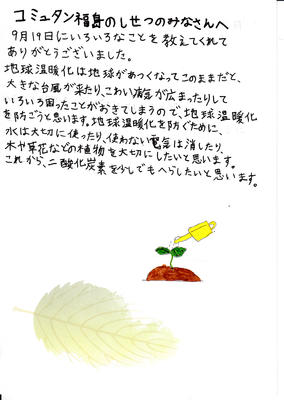 コミュタン福島のしせつのみなさんへ
9月19日にいろいろなことを教えてくれて
ありがとうございました。
地球温暖化は地球があつくなってこのままだと、
大きな台風が来たり、こわい病気が広まったりして
いろいろ困ったことがおきてしまうので、地球温暖化
を防ごうと思います。地球温暖化を防ぐために、
水は大切に使ったり、使わない電気は消したり、
木や草花などの植物を大切にしたいと思います。
これから、二酸化炭素を少しでもへらしたいと思います。